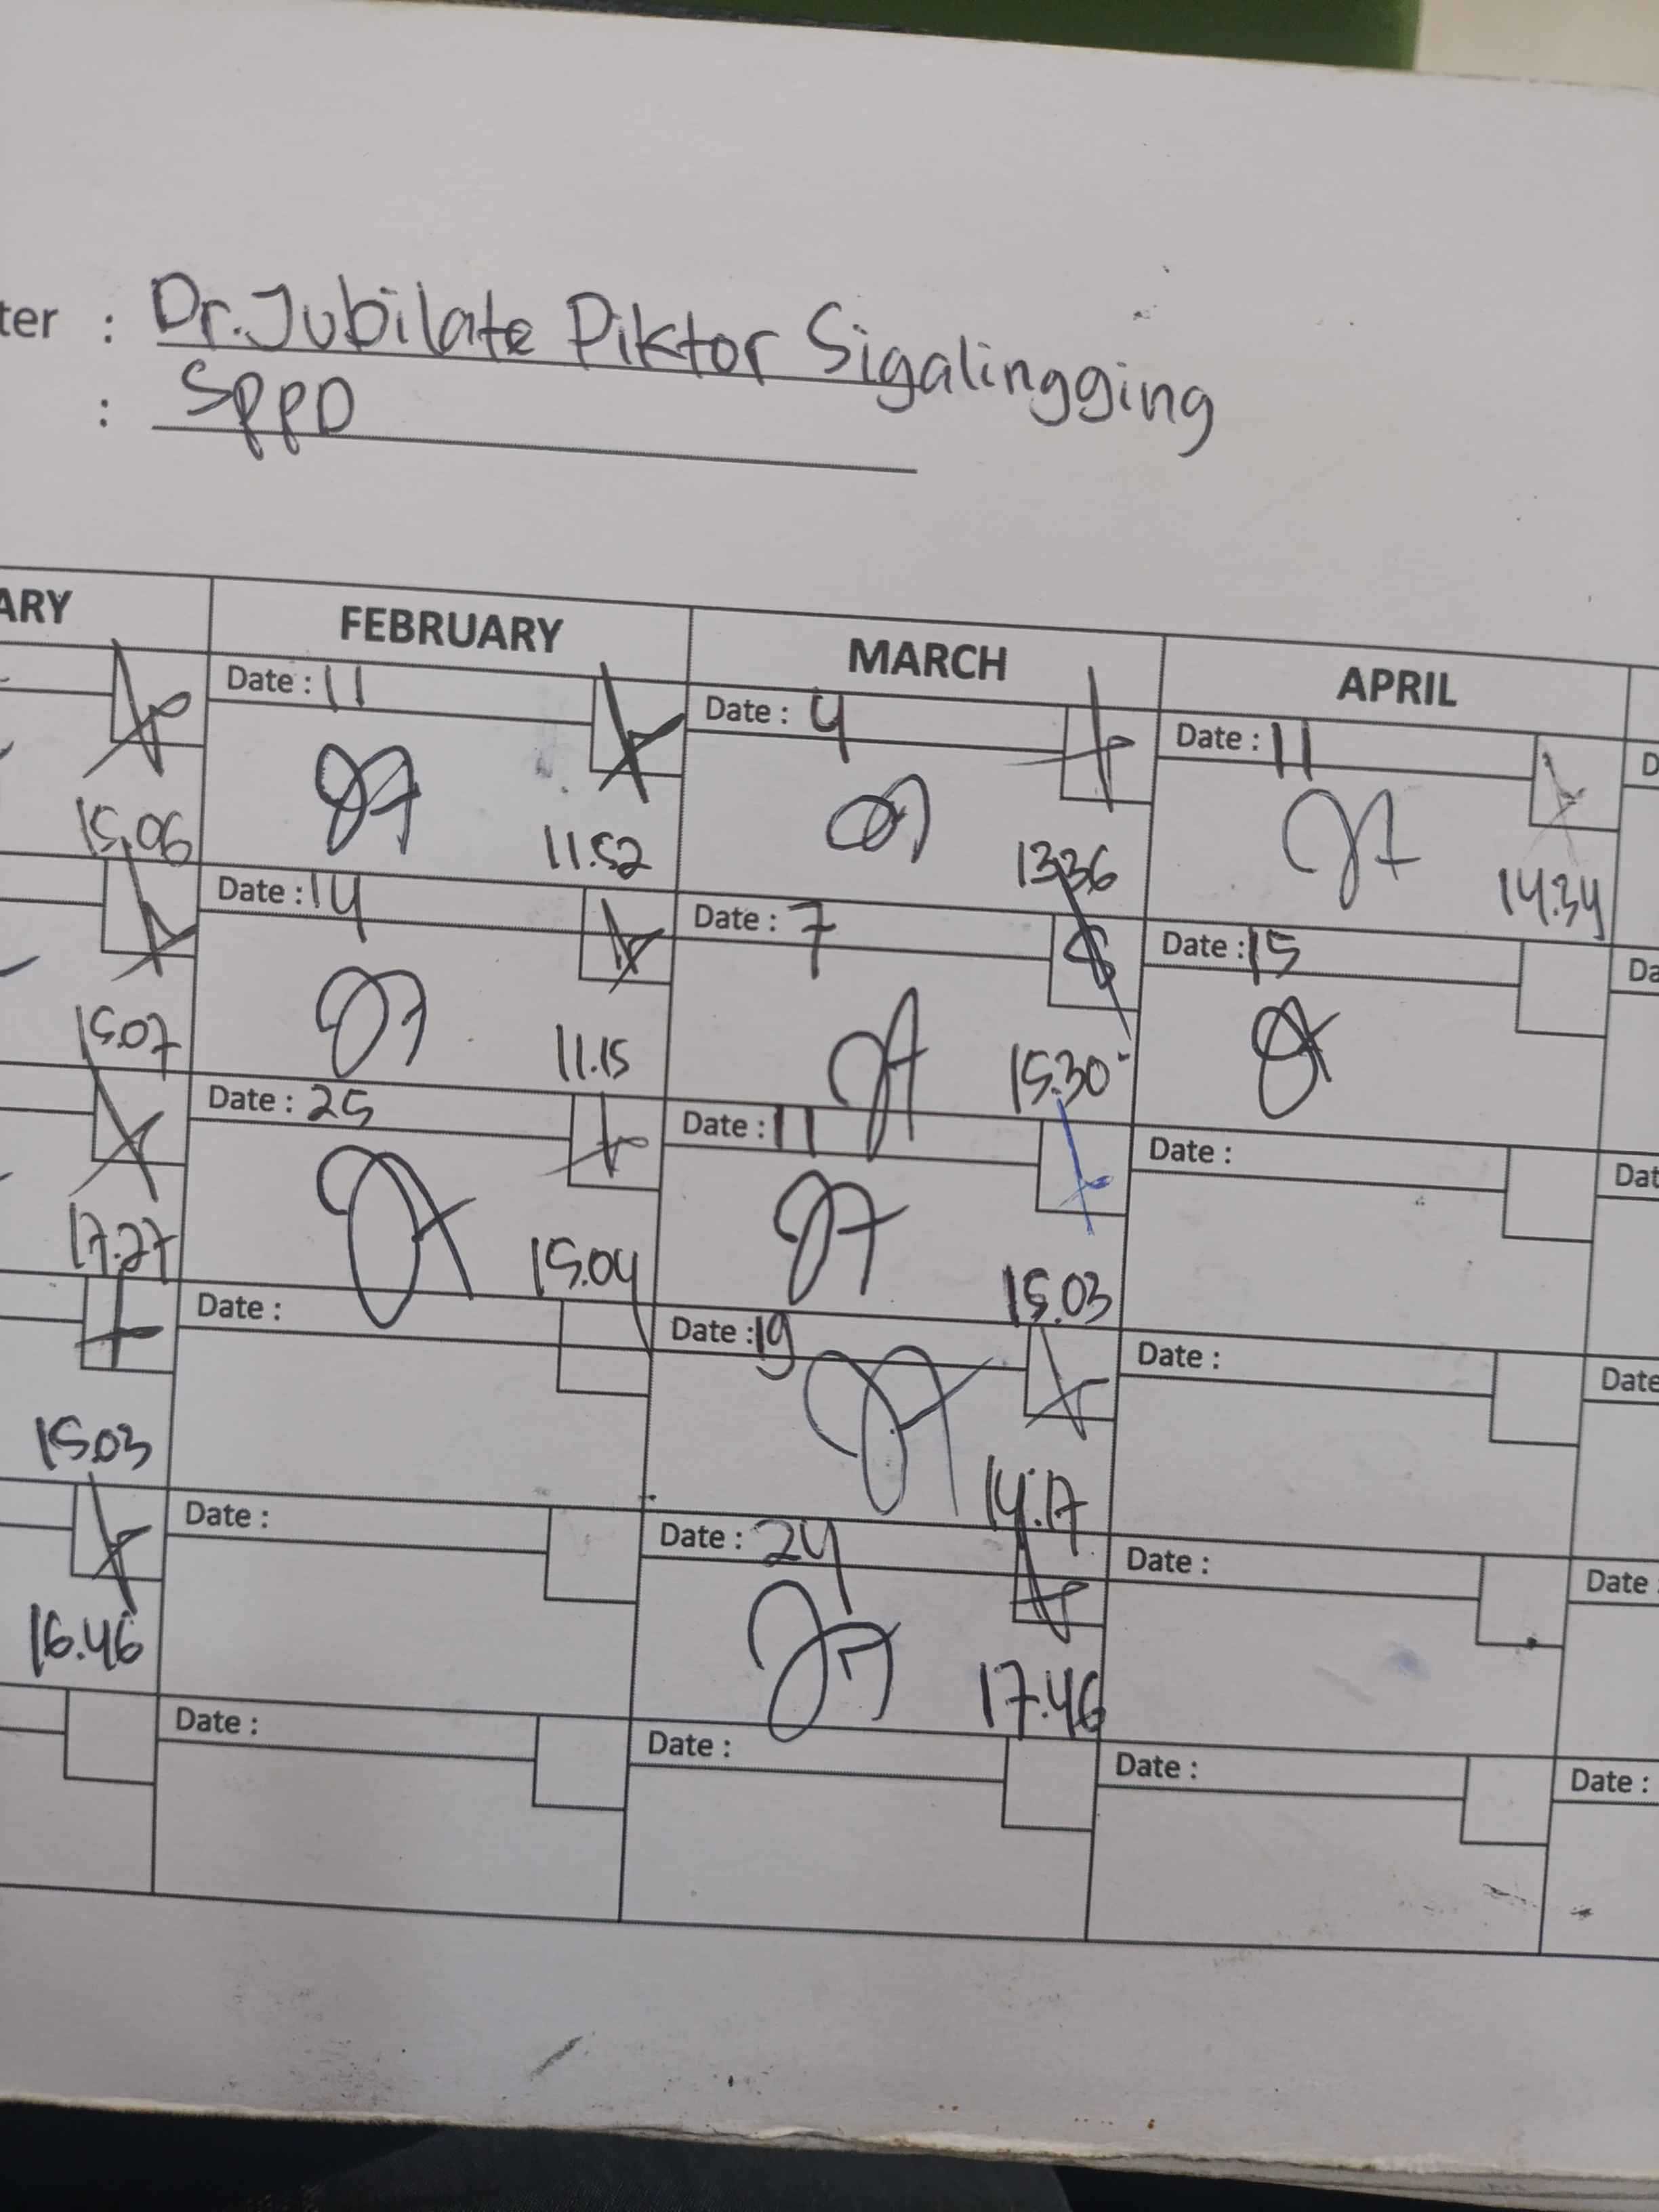 ter : Dr. Jubilate Piktor Sigalingging
: SppD
ARY FEBRUARY MARCH APRIL
Date : 11 Date : 4 Date : 11 D
15.06 11.52 13.36 14.34
Date : 14 Date : 7 Date : 15 Da
15.07 11.15 15.30
Date : 25 Date : 11 Date : Dat
17.27 15.04 15.03
Date : Date : 19 Date : Date
15.03 14.17
Date : Date : 24 Date : Date :
16.46 17.46
Date : Date : Date : Date :